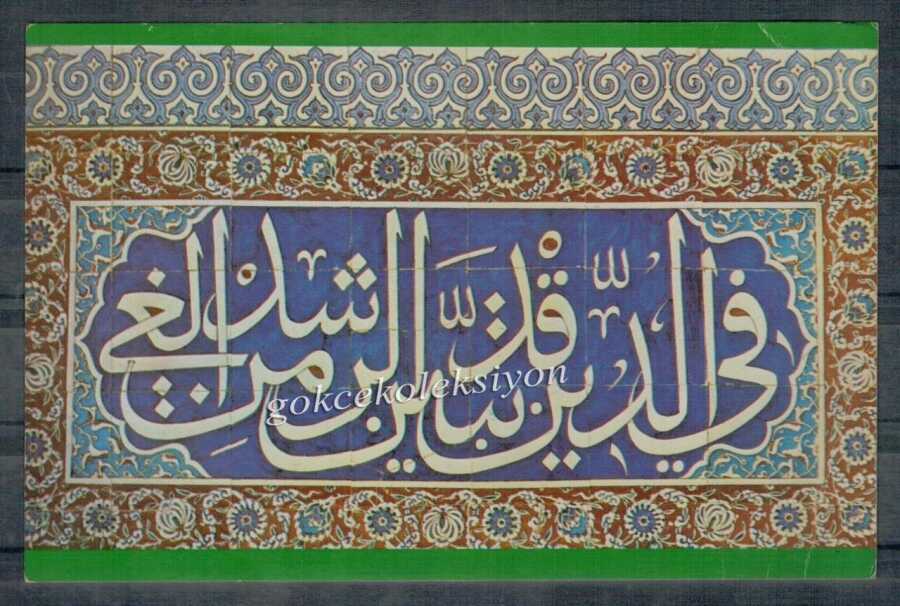 في الدين قد تبين الرشد من الغي
gokcekoleksiyon